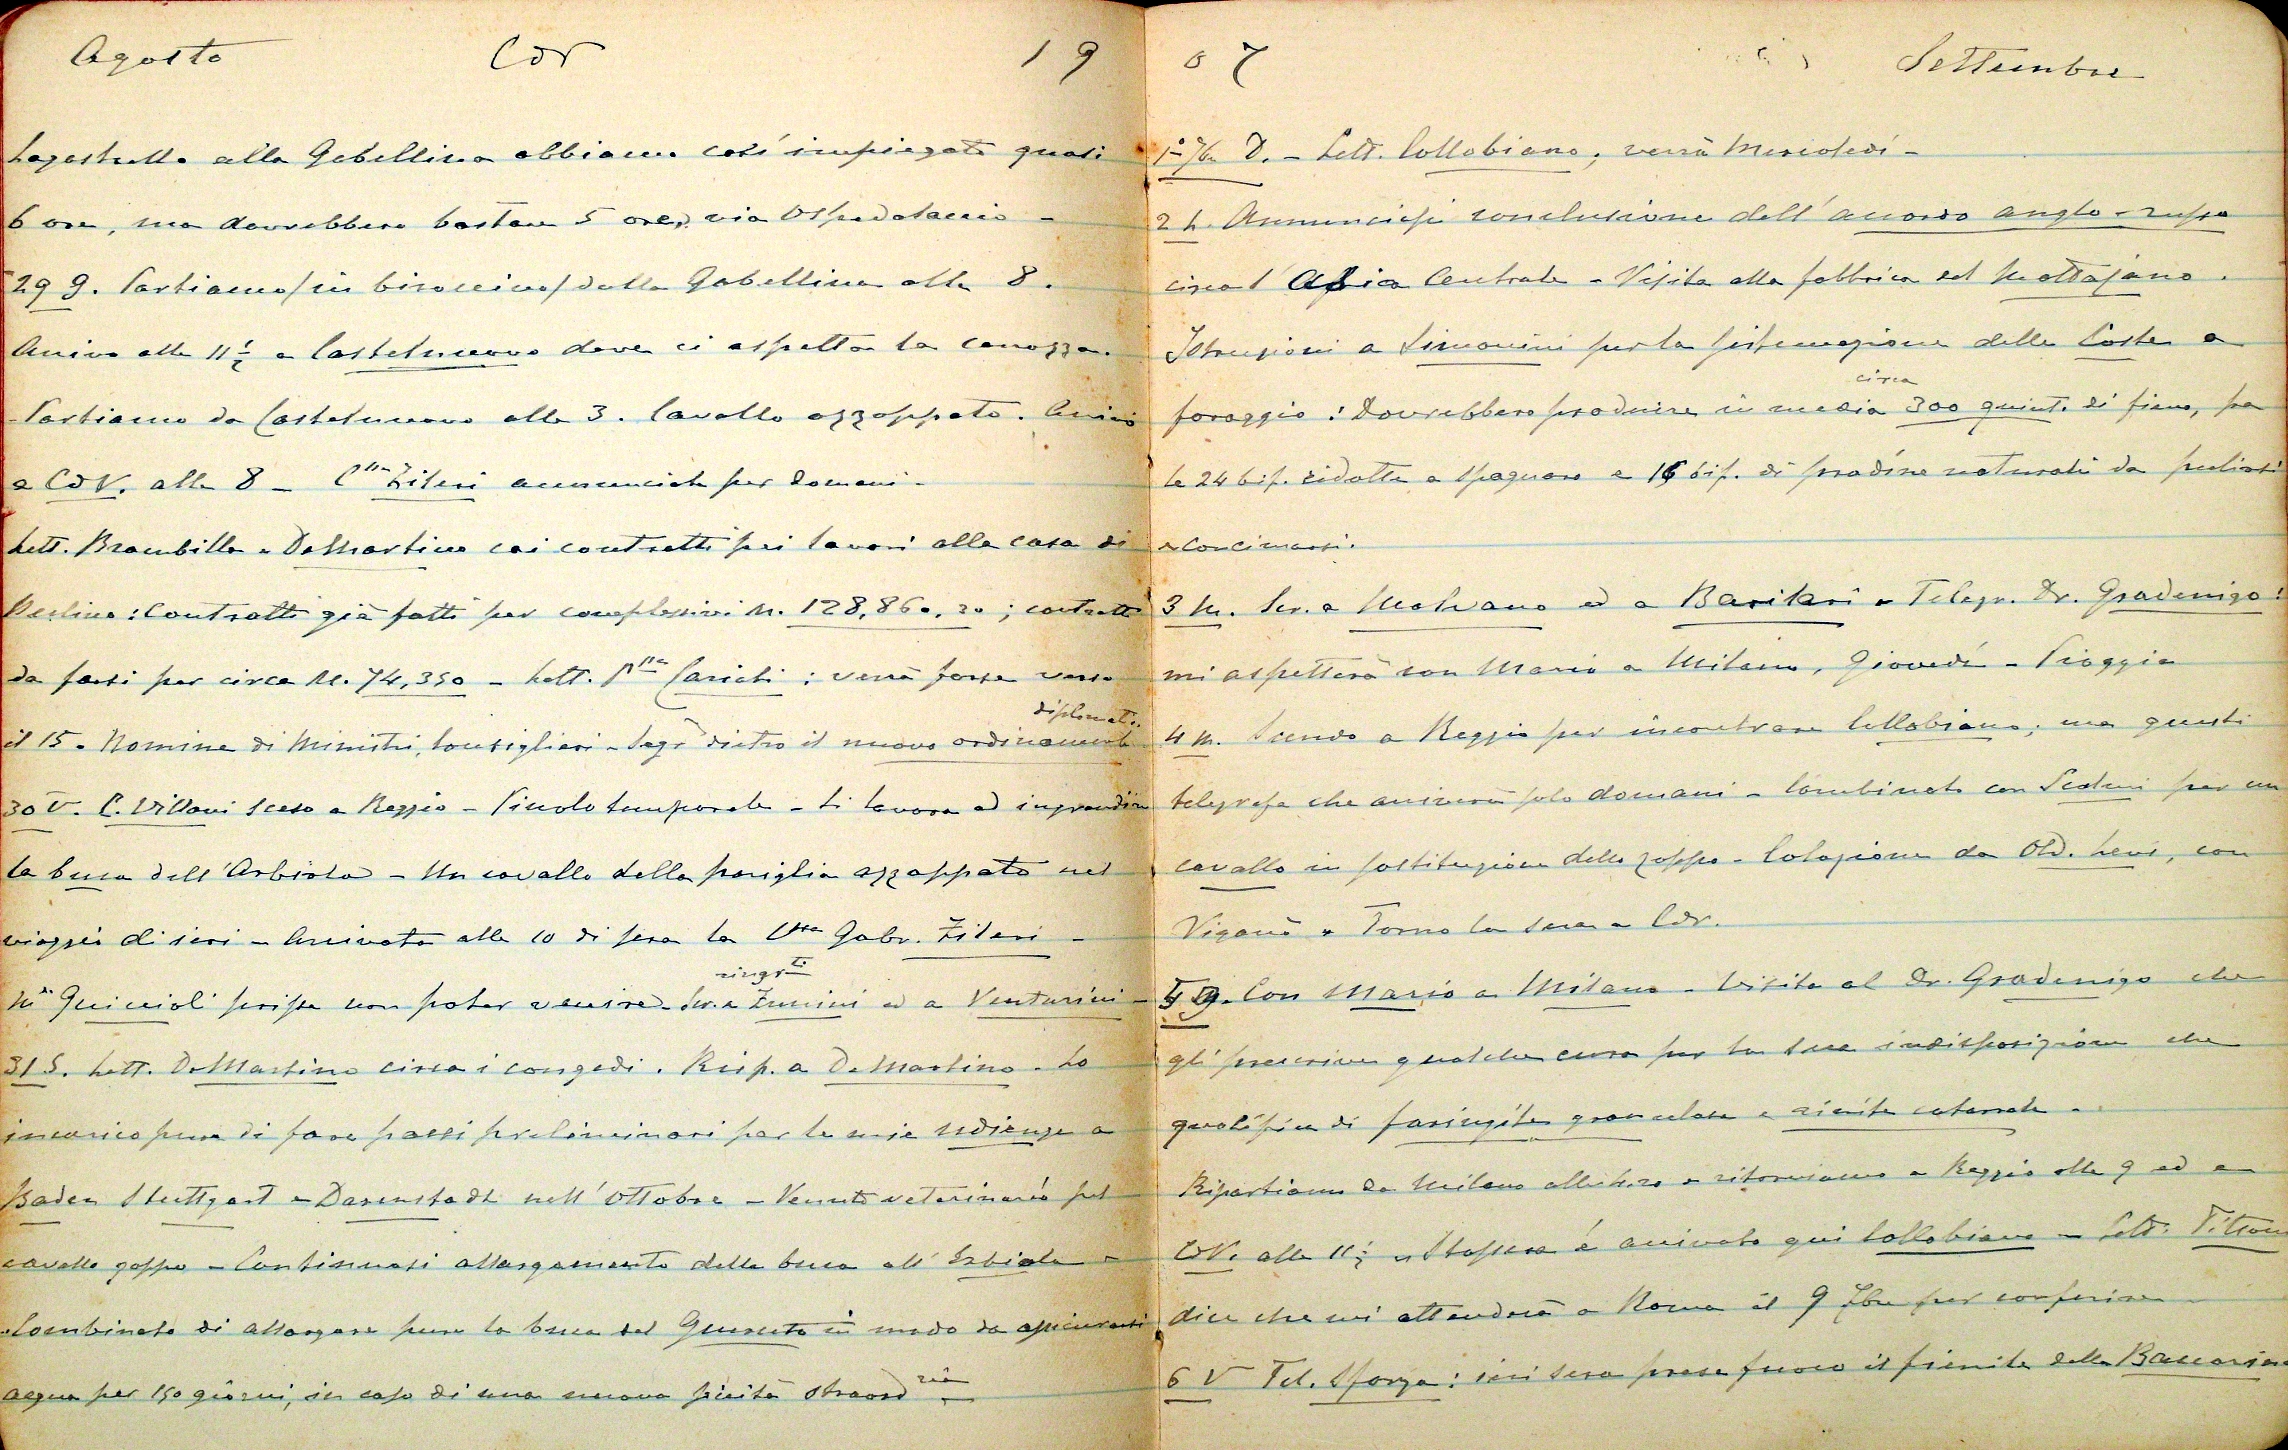 Agosto CdV 19
Lagastrello alla Gabellina abbiamo così impiegato quasi
6 ore, ma dovrebbero bastare 5 ore, via Ospedalaccio -
29 G. Partiamo (in biroccino) dalla Gabellina alle 8.
Arrivo alle 11½ a Castelnuovo dove ci aspetta la carrozza.
- Partiamo da Castelnuovo alle 3. Cavallo azzoppato. Arrivo
a CdV. alle 8 - Cssa Zileri annunciata per domani -
Lett. Brambilla e De Martino coi contratti pei lavori alla casa di
Berlino: contratti già fatti per complessivi M. 128,860.20; contratti
da farsi per circa M. 74,350 - Lett. Pssa Carichi: verrà forse verso
il 15. Nomine di Ministri, Consiglieri e Segri dietro il nuovo ordinamento diplomat.
30 V. C. Villani sceso a Reggio - Piccolo temporale - Si lavora ad ingrandire
la buca dell'Arbiola - Un cavallo della pariglia azzoppato nel
viaggio di ieri - Arrivata alle 10 di sera la Cssa Gabr. Zileri -
Mse Guiccioli scrisse non poter venire - Scr. a Zunini ringrti ed a Venturini -
31 S. Lett. De Martino circa i congedi. Risp. a De Martino. Lo
incarico pure di fare passi preliminari per le mie udienze a
Baden Stuttgart e Darmstadt nell'ottobre - Venuto veterinario pel
cavallo zoppo - Continuasi allargamento della buca all'Erbiola -
Combinato di allargare pure la buca del Querceto in modo da assicurarsi
acqua per 150 giorni, in caso di una nuova siccità straordria
07 Settembre
1° 7bre D. - Lett. Collobiano; verrà Mercoledì -
2 L. Annunciasi conclusione dell'accordo anglo-russo
circa l'Asia Centrale - Visita alla fabbrica del Mottajano.
Istruzioni a Simonini per la sistemazione delle Coste a
foraggio: Dovrebbero produrre in media circa 300 quint. di fieno, per
le 24 bif. ridotte a spagnaro e 16 bif. di pradine naturali da pulirsi
e concimarsi.
3 M. Scr. a Malvano ed a Barilari - Telegr. Dr. Gradenigo:
mi aspetterà con Mario a Milano, Giovedì - Pioggia
4 M. Scendo a Reggio per incontrare Collobiano; ma questi
telegrafa che arriverà solo domani - Combinato con Scaluri per un
cavallo in sostituzione dello zoppo - Colazione da Old. Levi, con
Viganò - Torno la sera a CdV.
5 G. Con Mario a Milano - Visita al Dr. Gradenigo che
gli prescrive qualche cura per la sua indisposizione che
qualifica di faringite granulosa e rinite catarrale -
Ripartiamo da Milano e ritorniamo a Reggio alle 9 ed a
CdV. alle 11½ - Stassera è arrivato qui Collobiano - Lett. Tittoni
dice che mi attenderà a Roma il 9 7bre per conferire.
6 V Tel. Sforza: ieri sera prese fuoco il fienile della